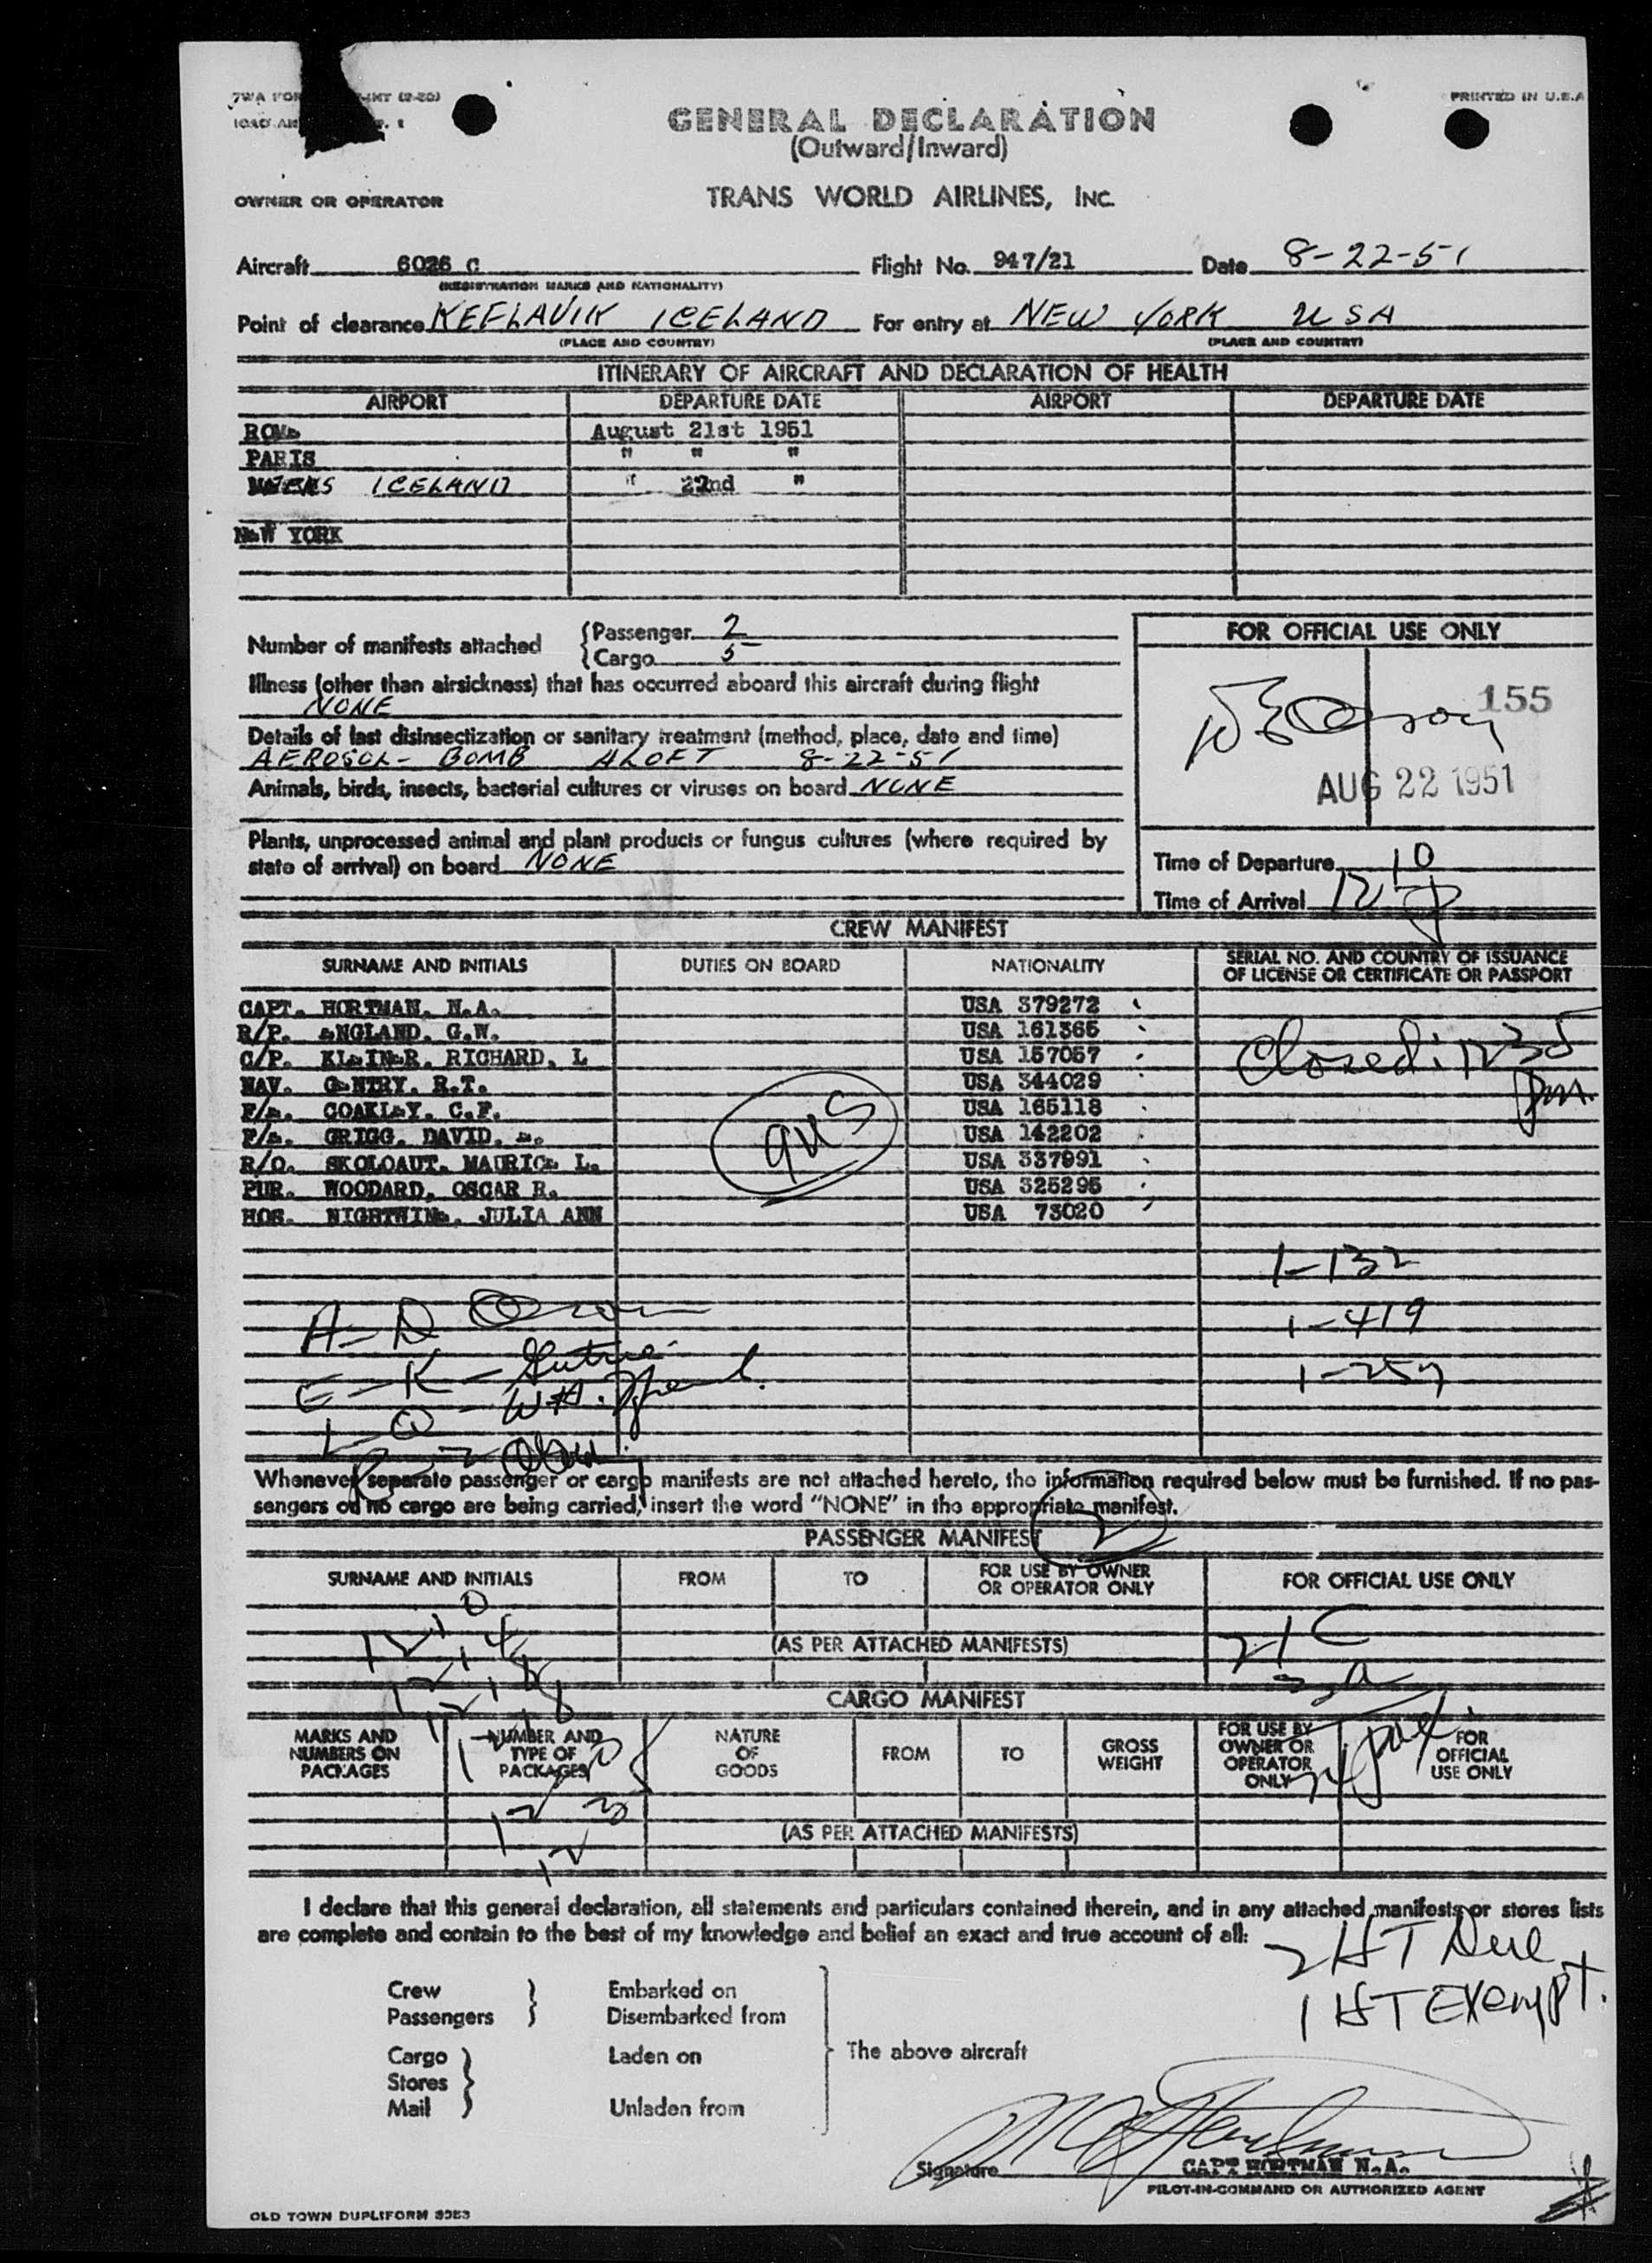 PRINTED IN U.S.A
GENERAL DECLARATION
(Outward/Inward)
OWNER OR OPERATOR TRANS WORLD AIRLINES, INC.
Aircraft 6026 C Flight No. 947/21 Date 8-22-51
(REGISTRATION MARKS AND NATIONALITY)
Point of clearance KEFLAVIK ICELAND For entry at NEW YORK USA
(PLACE AND COUNTRY) (PLACE AND COUNTRY)
ITINERARY OF AIRCRAFT AND DECLARATION OF HEALTH
AIRPORT DEPARTURE DATE AIRPORT DEPARTURE DATE
ROME August 21st 1951
PARIS " " "
ICELAND " 22nd "
NEW YORK
Number of manifests attached {Passenger 2
{Cargo 5
Illness (other than airsickness) that has occurred aboard this aircraft during flight
NONE
Details of last disinsectization or sanitary treatment (method, place, date and time)
AEROSOL- BOMB ALOFT 8-22-51
Animals, birds, insects, bacterial cultures or viruses on board NONE
Plants, unprocessed animal and plant products or fungus cultures (where required by
state of arrival) on board NONE
FOR OFFICIAL USE ONLY
155
AUG 22 1951
Time of Departure 10
Time of Arrival
CREW MANIFEST
SURNAME AND INITIALS DUTIES ON BOARD NATIONALITY SERIAL NO. AND COUNTRY OF ISSUANCE
OF LICENSE OR CERTIFICATE OR PASSPORT
CAPT. HORTMAN, N.A. USA 379272
R/P. ENGLAND, G.W. USA 161365
C/P. KLEINER, RICHARD, L USA 157057
NAV. GENTRY, R.T. USA 344029
F/E. COAKLEY, C.F. USA 165118
F/E. GRIGG, DAVID, E. USA 142202
R/O. SKOLOAUT, MAURICE L. USA 337991
PUR. WOODARD, OSCAR R. USA 325295
HOS. NIGHTWINE, JULIA ANN USA 73020
Closed: 1235
pm.
9US
1-132
1-419
1-257
A-D
E-K-
L-Q-
Whenever separate passenger or cargo manifests are not attached hereto, the information required below must be furnished. If no pas-
sengers or no cargo are being carried, insert the word "NONE" in the appropriate manifest.
PASSENGER MANIFEST
SURNAME AND INITIALS FROM TO FOR USE BY OWNER
OR OPERATOR ONLY FOR OFFICIAL USE ONLY
(AS PER ATTACHED MANIFESTS)
21 C
3 a
24 pax.
CARGO MANIFEST
MARKS AND
NUMBERS ON
PACKAGES
NUMBER AND
TYPE OF
PACKAGES
NATURE
OF
GOODS
FROM TO
GROSS
WEIGHT
FOR USE BY
OWNER OR
OPERATOR
ONLY
FOR
OFFICIAL
USE ONLY
(AS PER ATTACHED MANIFESTS)
I declare that this general declaration, all statements and particulars contained therein, and in any attached manifests or stores lists
are complete and contain to the best of my knowledge and belief an exact and true account of all:
2 HT Due
1 HT Exempt.
Crew } Embarked on
Passengers } Disembarked from
Cargo } Laden on
Stores
Mail } Unladen from
The above aircraft
Signature CAPT HORTMAN N.A.
PILOT-IN-COMMAND OR AUTHORIZED AGENT
OLD TOWN DUPLIFORM